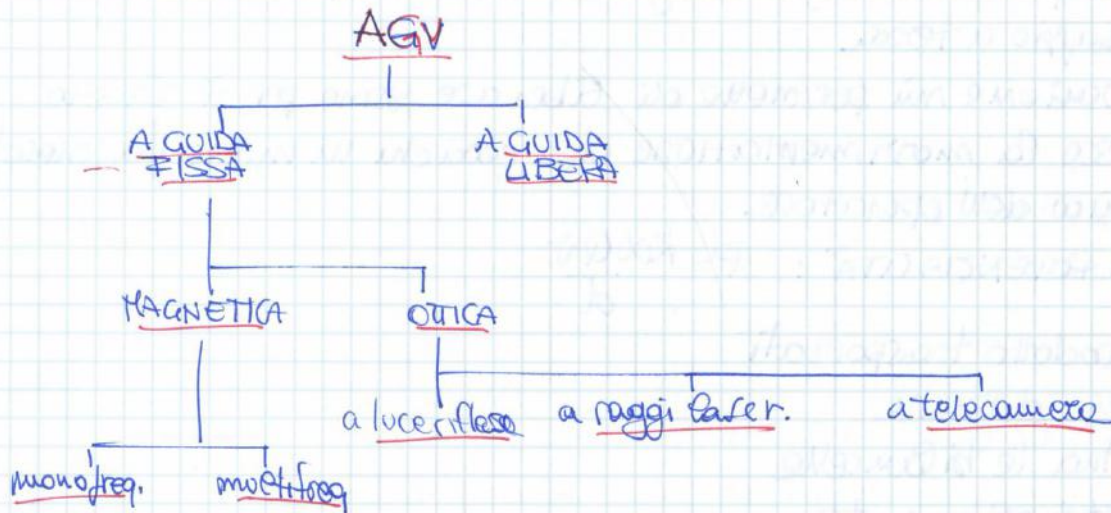 AGV
A GUIDA
FISSA
A GUIDA
LIBERA
MAGNETICA
OTTICA
a luce riflessa
a raggi laser.
a telecamera
monofreq.
multifreq